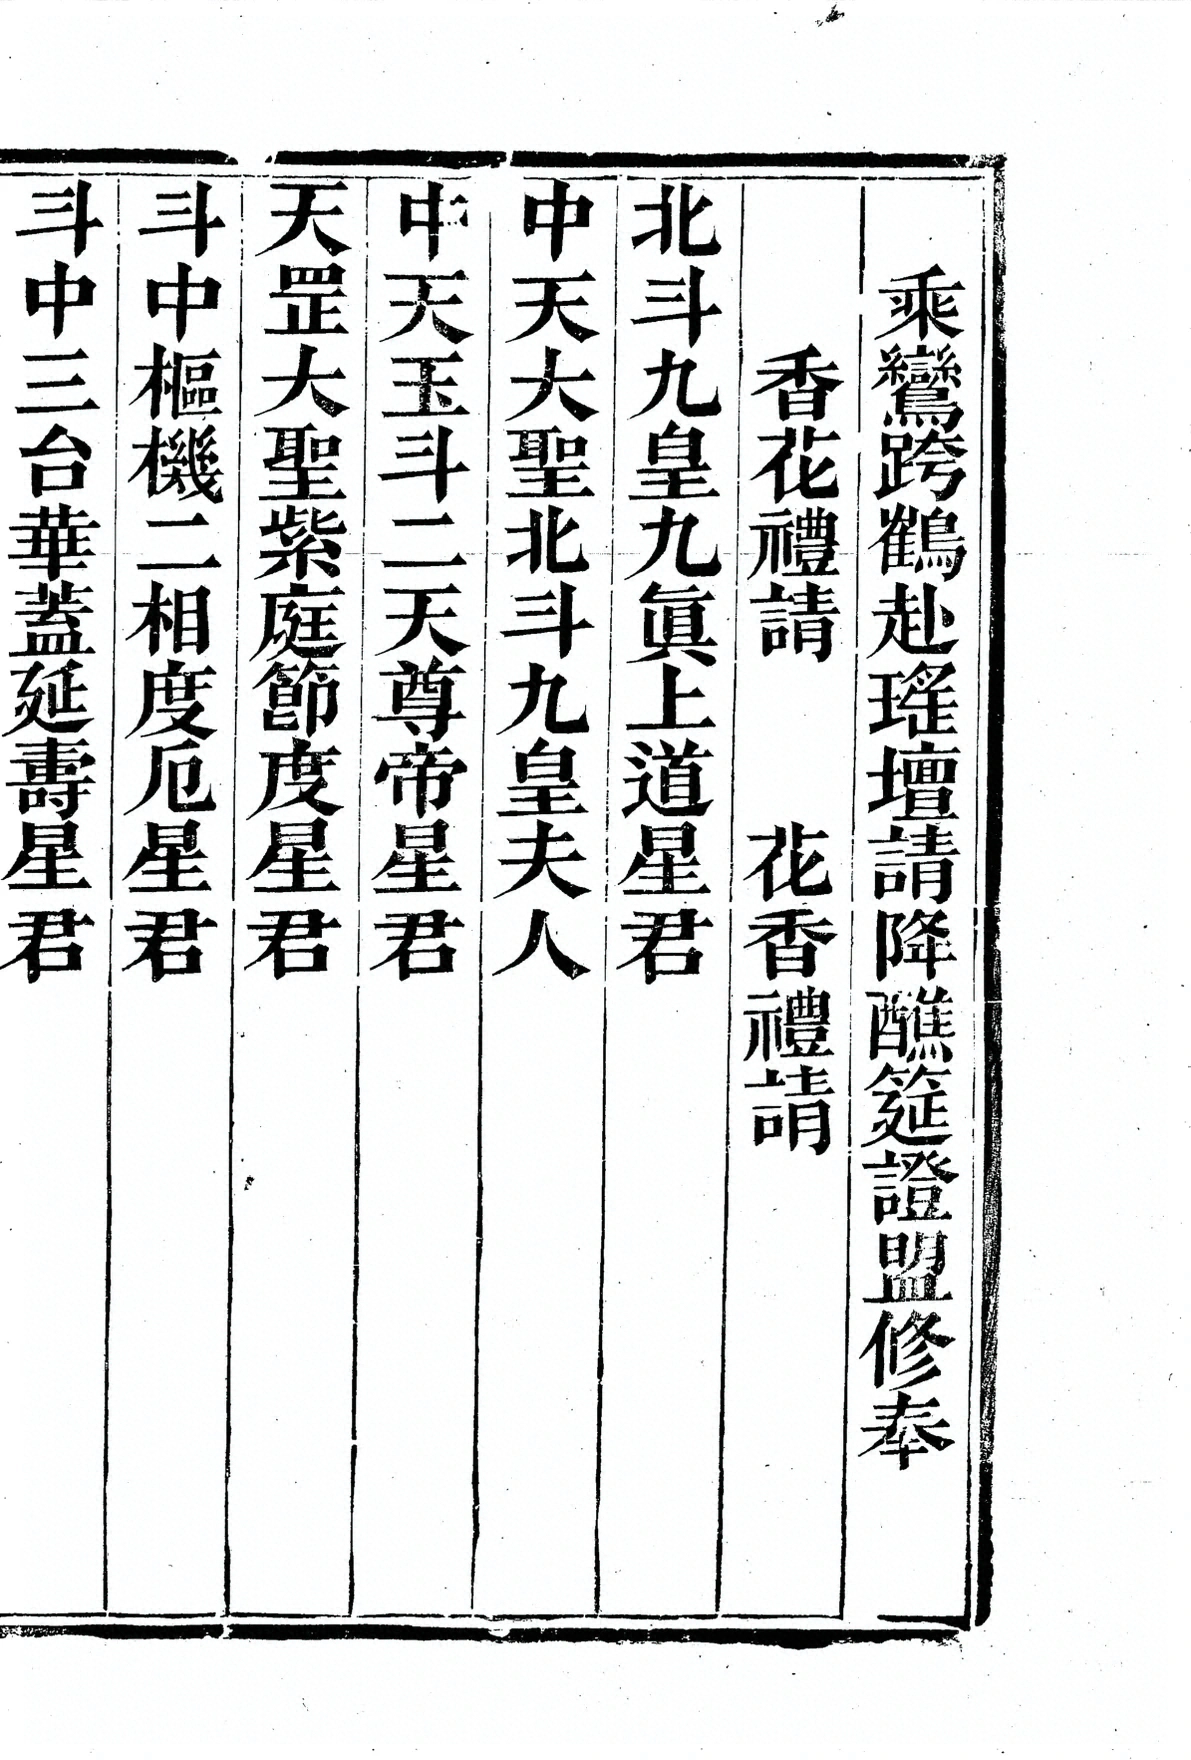 乘鸞跨鶴赴瑤壇請降醮筵證盟修奉
香花禮請　花香禮請
北斗九皇九眞上道星君
中天大聖北斗九皇夫人
中天玉斗二天尊帝星君
天罡大聖紫庭節度星君
斗中樞機二相度厄星君
斗中三台華蓋延壽星君